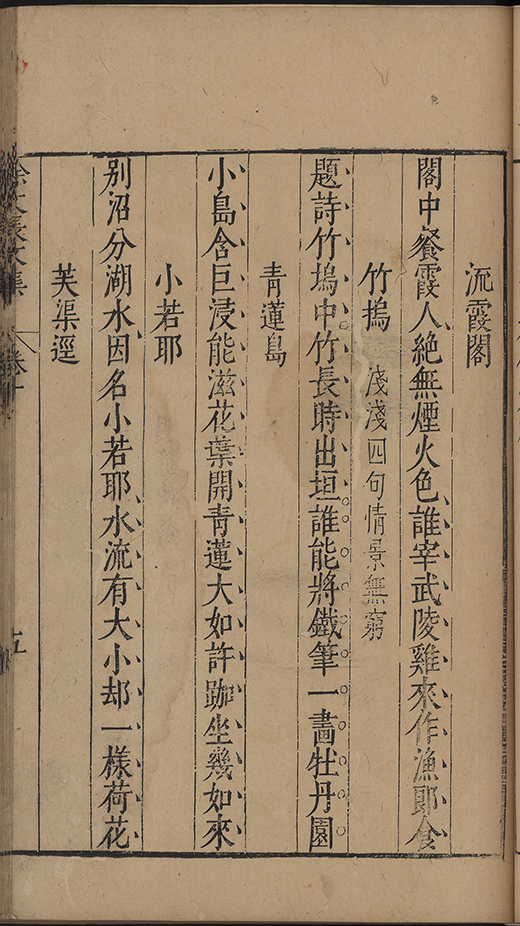 流霞閣
閣中餐霞人絶無煙火色誰宰武陵雞來作漁郎食
竹塢 淺淺四句情景無窮
題詩竹塢中竹長時出垣誰能將鐵筆一畵牡丹園
青蓮島
小島含巨浸能滋花葉開青蓮大如許跏坐幾如來
小若耶
别沼分湖水因名小若耶水流有大小却一樣荷花
芙渠逕
徐文長文集 卷十 五